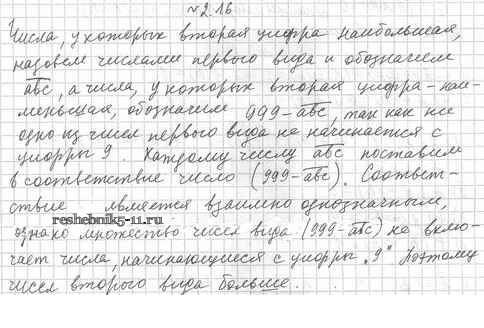 №2.16
Числа, у которых вторая цифра наибольшая,
назовем числами первого вида и обозначим
abc, а числа, у которых вторая цифра - наи-
меньшая, обозначим 999-abc, так как не
одно из чисел первого вида не начинается с
цифры 9. Каждому числу abc поставим
в соответствие число (999-abc). Соответ-
ствие является взаимно однозначным,
reshebnik5-11.ru
однако множество чисел вида (999-abc) не вклю-
чает числа, начинающиеся с цифры "9" Поэтому
чисел второго вида больше.